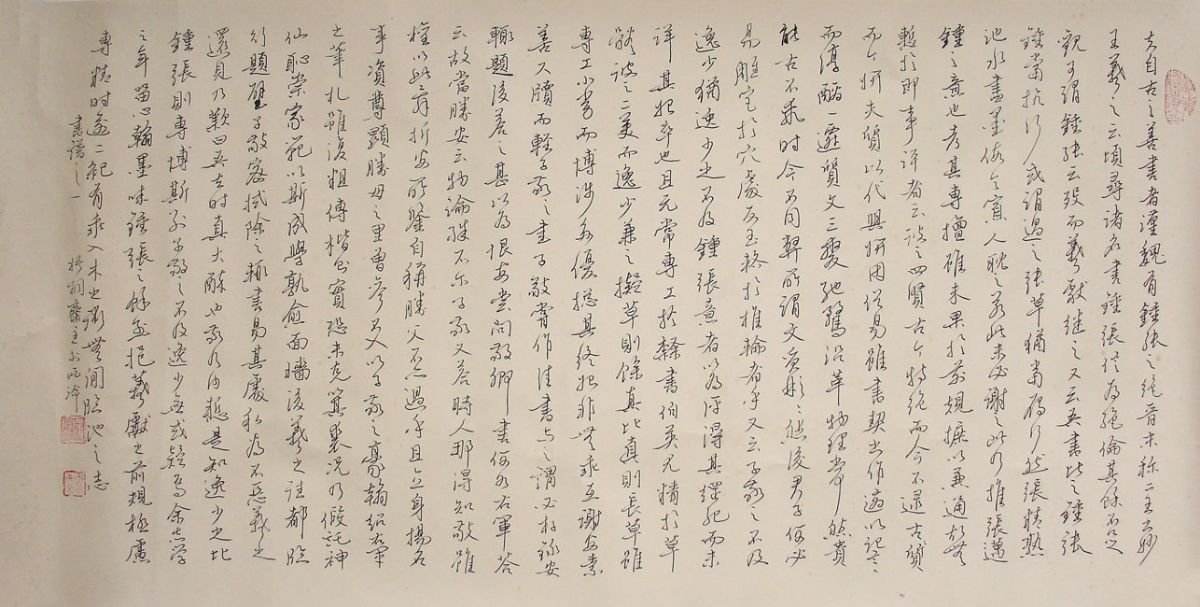 夫自古之善書者漢魏有鍾張之絕晉末稱二王之妙
王羲之云頃尋諸名書鍾張信為絕倫其餘不足
觀可謂鍾張云沒而羲獻繼之又云吾書比之鍾張
鍾當抗行或謂過之張草猶當雁行然張精熟
池水盡墨假令寡人耽之若此未必謝之此乃推張邁
鍾之意也考其專擅雖未果於前規摭以兼通故無
慙於即事評者云彼之四賢古今特絕而今不逮古質
而今妍夫質以代興妍因俗易雖書契之作適以記言
而淳醨一遷質文三變馳騖沿革物理常然貴
能古不乖時今不同弊所謂文質彬彬然後君子何必
易雕宮於穴處反玉輅於椎輪者乎又云子敬之不及
逸少猶逸少之不及鍾張意者以為評得其綱紀而未
詳其始卒也且元常專工於隸書伯英尤精於草
體彼之二美而逸少兼之擬草則餘真比真則長草雖
專工小劣而博涉多優揔其終始非無乖互謝安素
善尺牘而輕子敬之書子敬嘗作佳書與之謂必存錄安
輒題後答之甚以為恨安嘗問敬卿書何如右軍答
云故當勝安云物論殊不尔子敬又答時人那得知敬雖
權以此辭折安所鑒自稱勝父不亦過乎且立身揚名
事資尊顯勝母之里曾參不入以子敬之豪翰紹右軍
之筆札雖復粗傳楷則實恐未克箕裘況乃假託神
仙恥崇家範以斯成學孰愈面牆後羲之往都臨
行題壁子敬密拭除之輒書易其處私為不惡羲之
還見乃歎曰吾去時真大醉也敬乃內慙是知逸少之比
鍾張則專博斯別子敬之不及逸少無或疑焉余志學
之年留心翰墨味鍾張之餘烈挹羲獻之前規極慮
專精時逾二紀有乖入木之術無間臨池之志
書譜之一